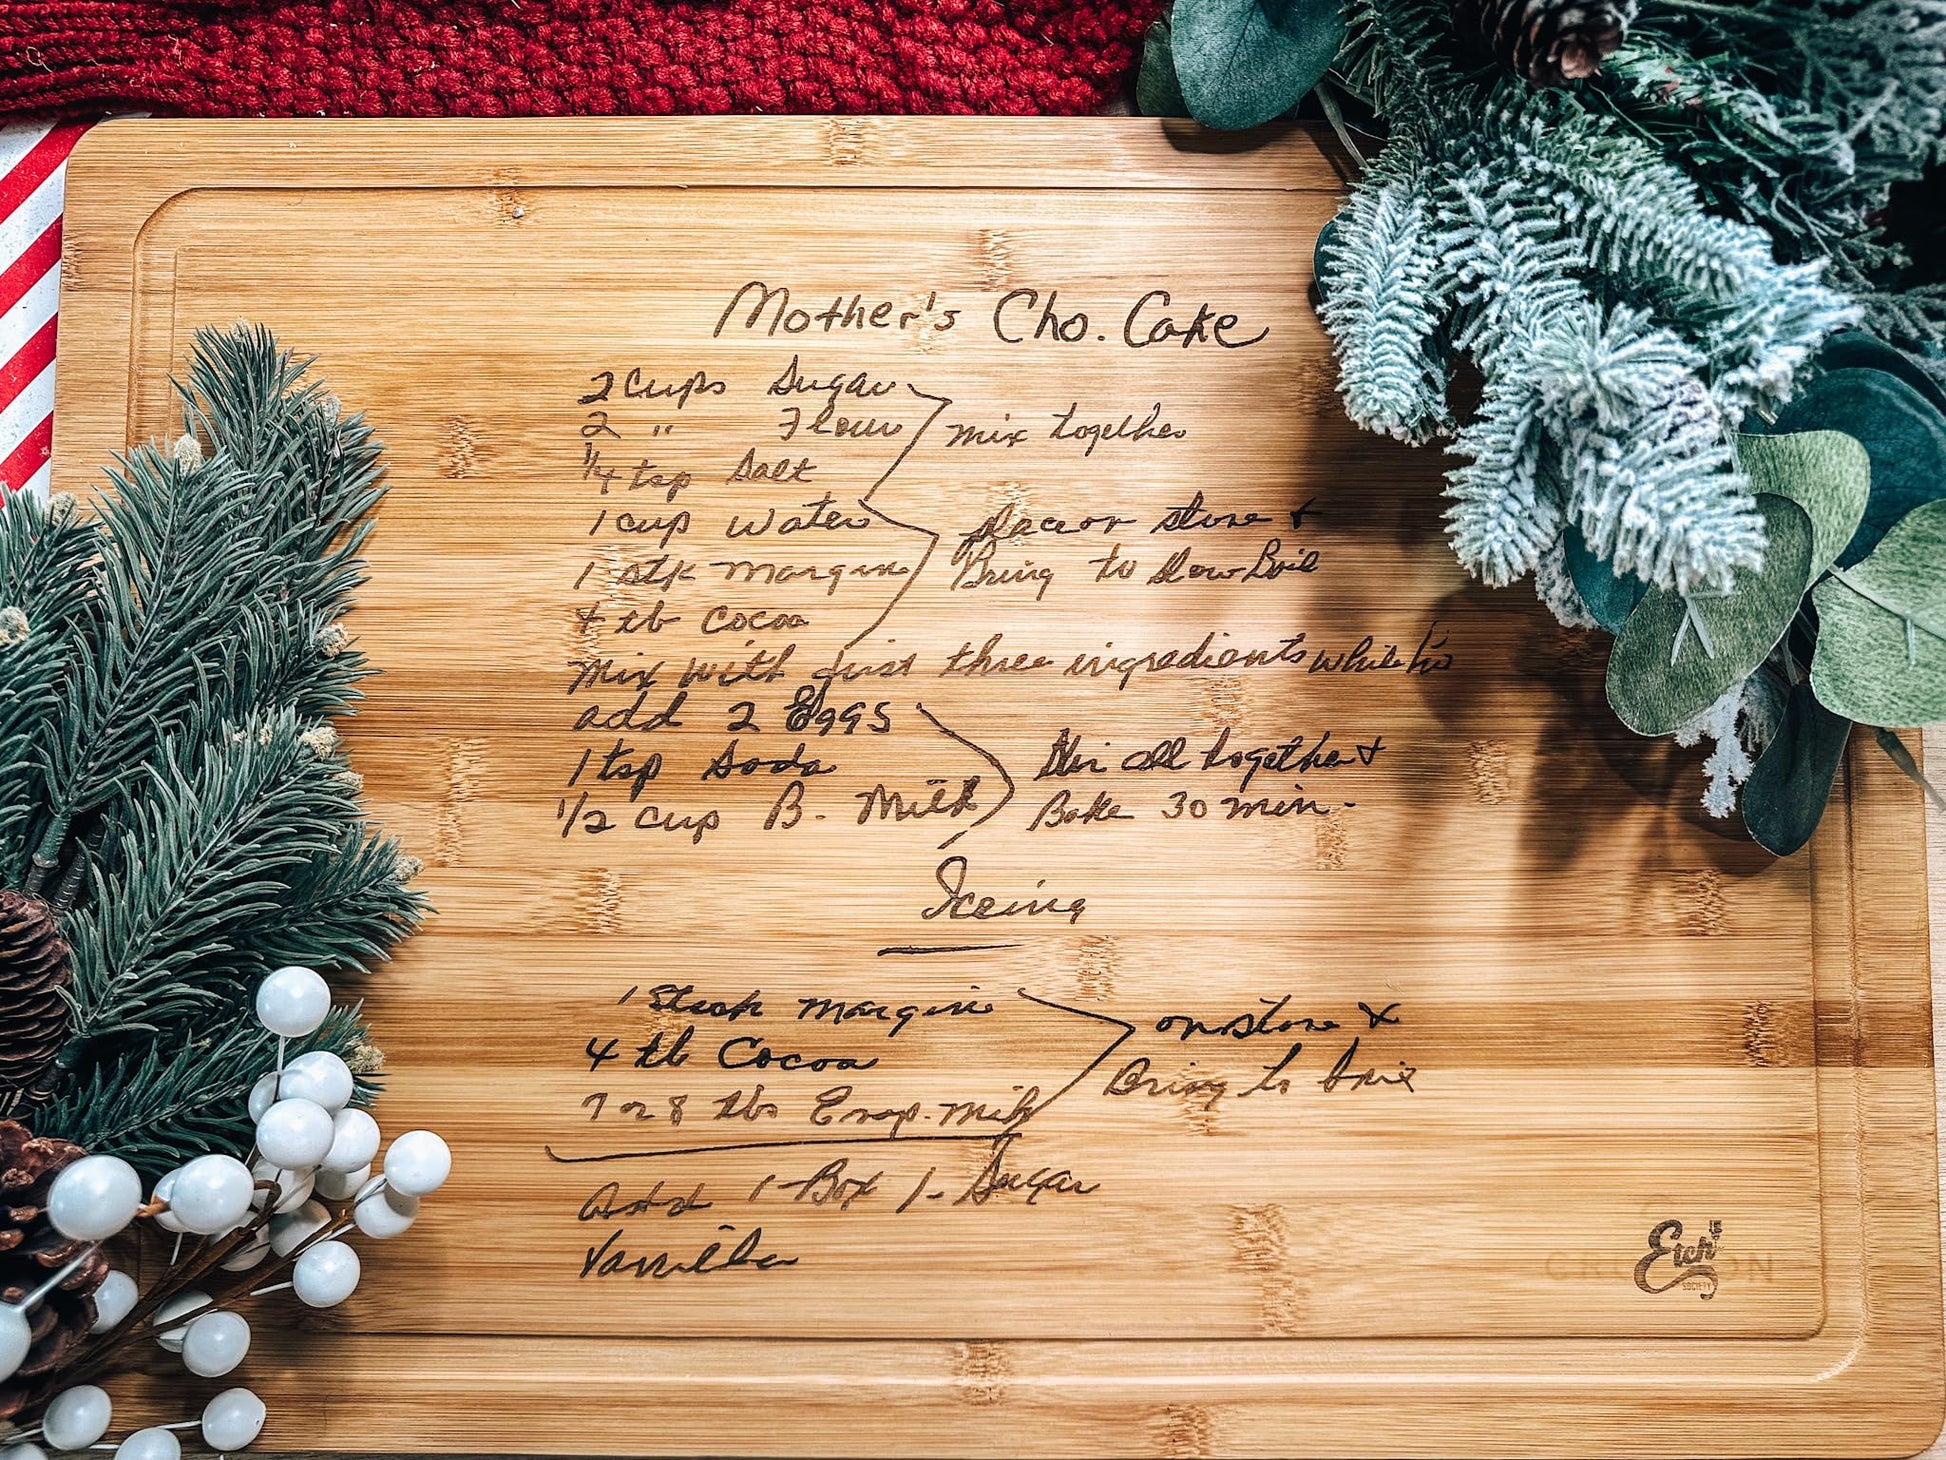 Mother's Cho. Cake
2 Cups Sugar
2 " Flour
1/4 tsp Salt
mix together
1 cup water
1 stk margine
4 tb Cocoa
place on stove +
Bring to slow Boil
mix with first three ingredients while hot
add 2 Eggs
1 tsp Soda
1/2 cup B. Milk
Stir all together +
Bake 30 min.
Iceing
1 Stick margine
4 tb Cocoa
7 or 8 tbs Evap. milk
on stove +
Bring to
add 1-Box 1- Sugar
Vanilla
Etch
SOCIETY